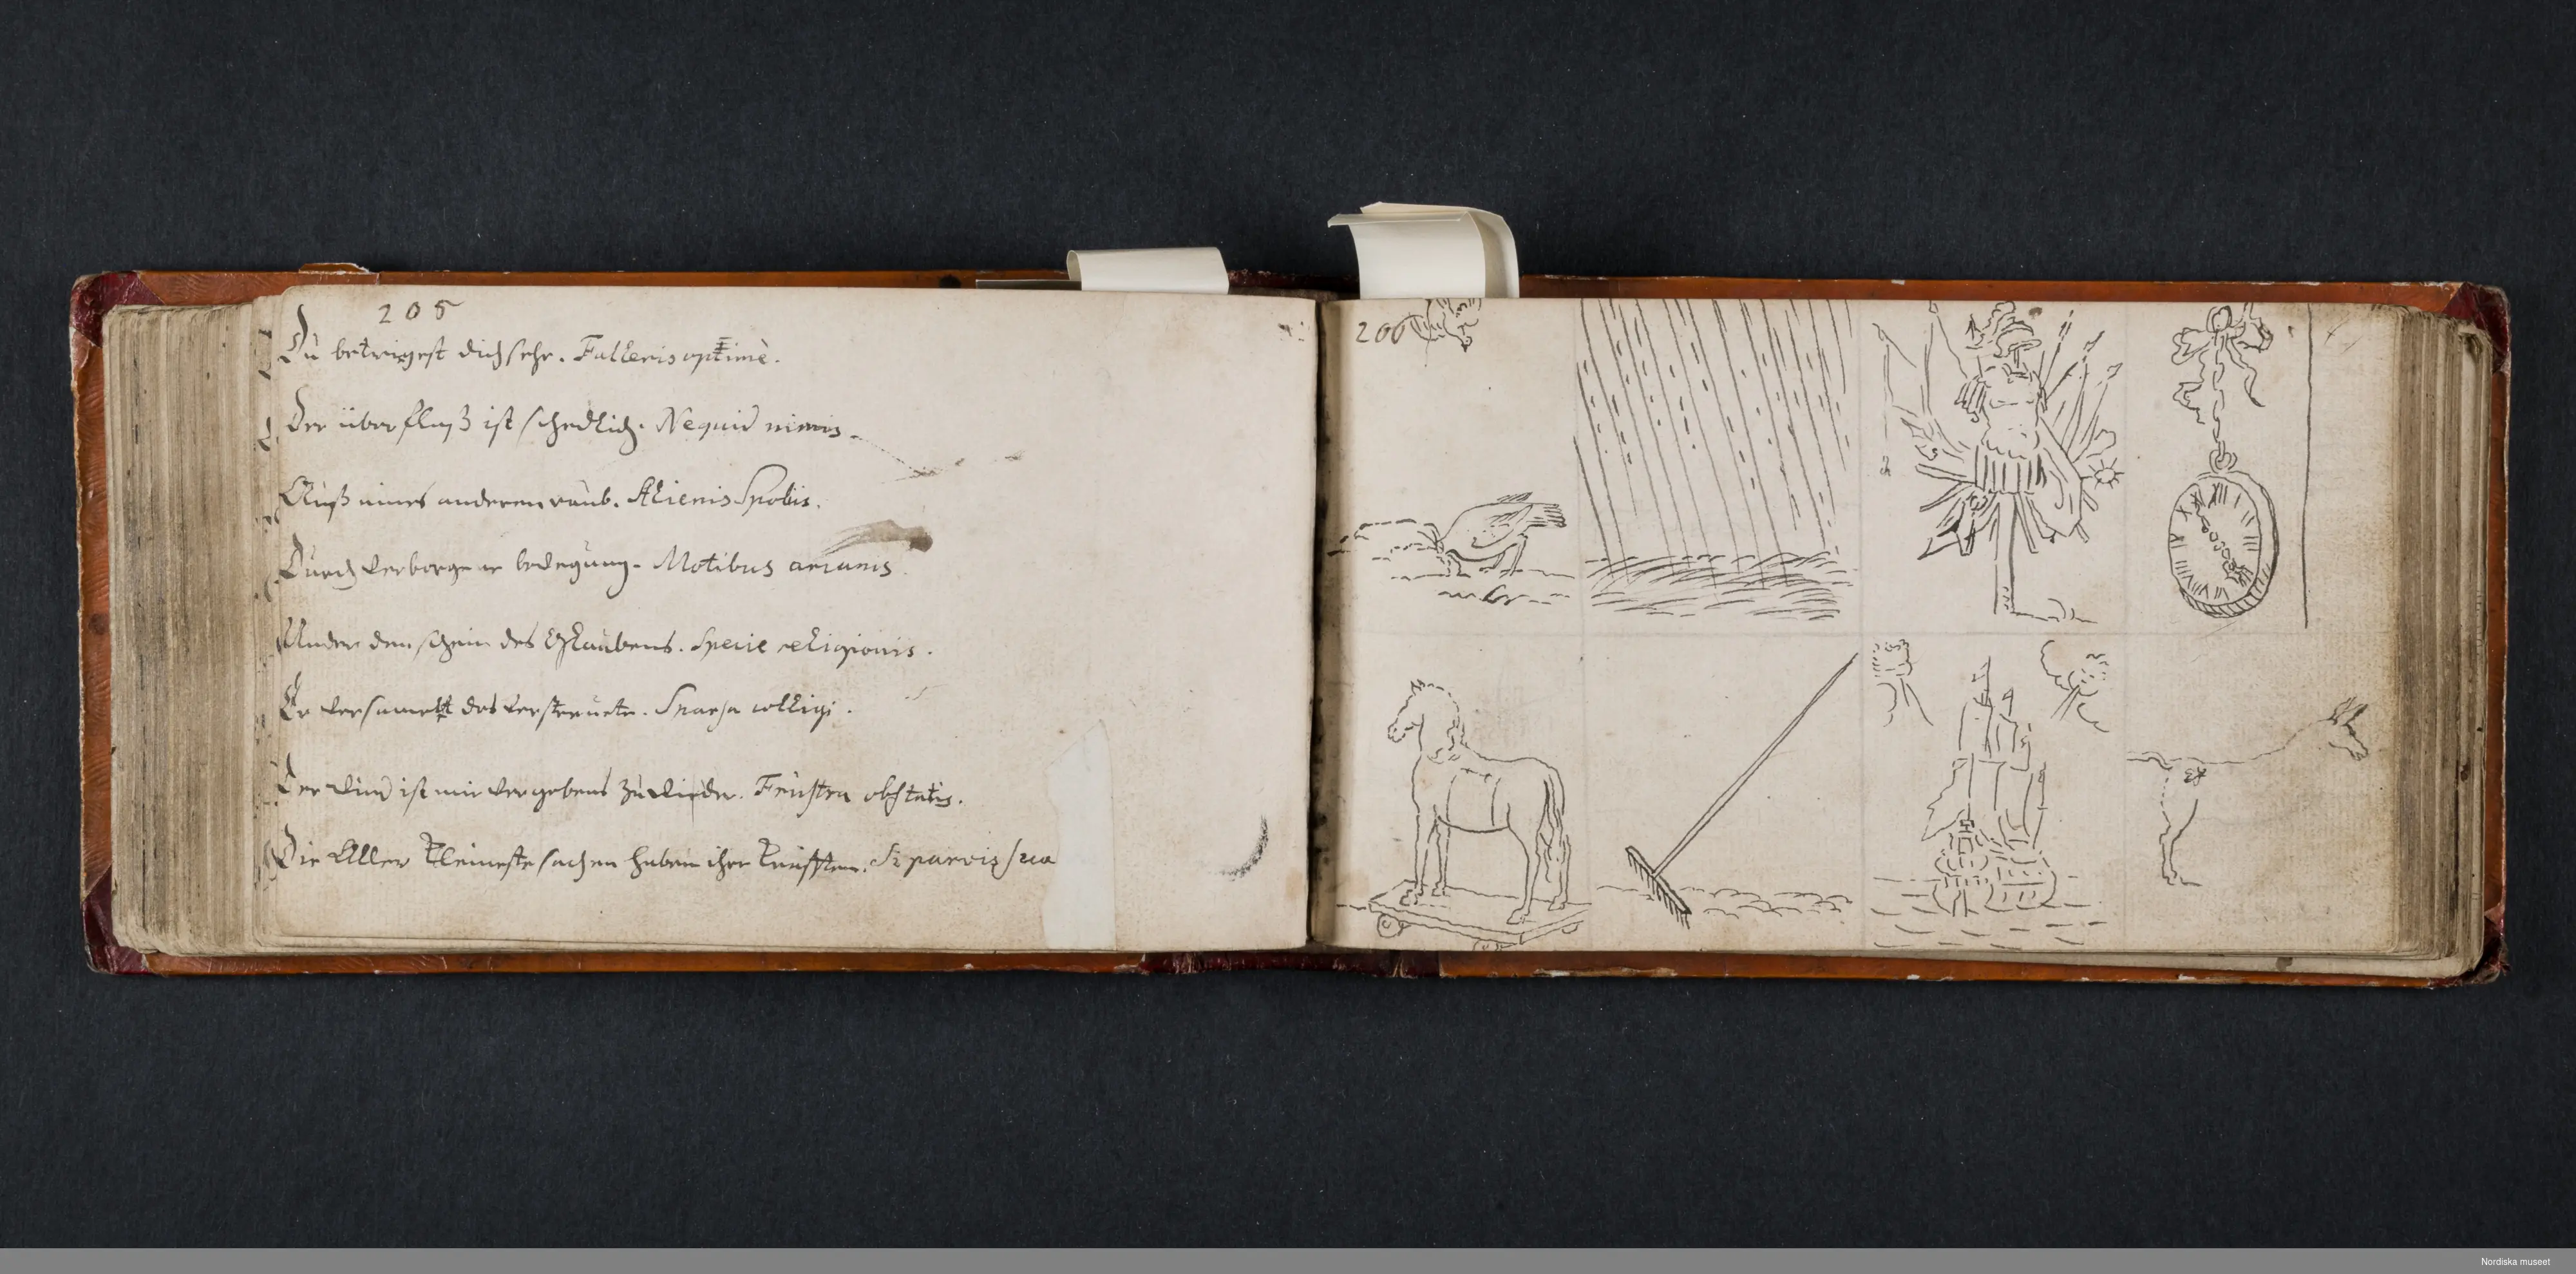 205
Du betriegest dich sehr. Falleris optime.
Der überfluß ist schedlich. Nequid nimis.
Auß eines anderen raub. Alienis Spoliis.
Durch verborgene bewegung. Motibus arcanis.
Under dem schein des Glaubens. Specie religionis.
Er versamelt das verstreuete. Sparsa colligi.
Der wind ist mir vergebens zu wieder. Frustra obstatis.
Die Aller kleineste sachen haben ihre kräfften. Si parvis sua
206
XII
Nordiska museet